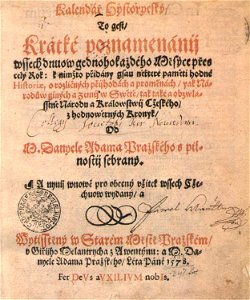 Kalendář Hystorycký /
To gest /
Krátké poznamenánij
wssech dnuow gednohokaždého Měsýce přes
celý Rok: k nimžto přidány gsau některé paměti hodné
Historiæ, o rozličných přijhodách a proměnách / yak Ná-
roduow giných a Zemij w Swětě / tak také a obzwlá-
sstně Národu a Králowstwij Cžského /
z hodnowěrných Kronyk /
Od
M. Danyele Adama Pražského s pil-
nostij sebraný.
A nynij wnowě pro obecný vžitek wssech Cže-
chuow wydaný / a
Wytisstěný w Starém Městě Pražském /
v Giřijho Melantrycha z Awentynu: a M. Da-
nyele Adama Pražského / Léta Páně 1578.
Fer DeVs aVXILIVM nobis.